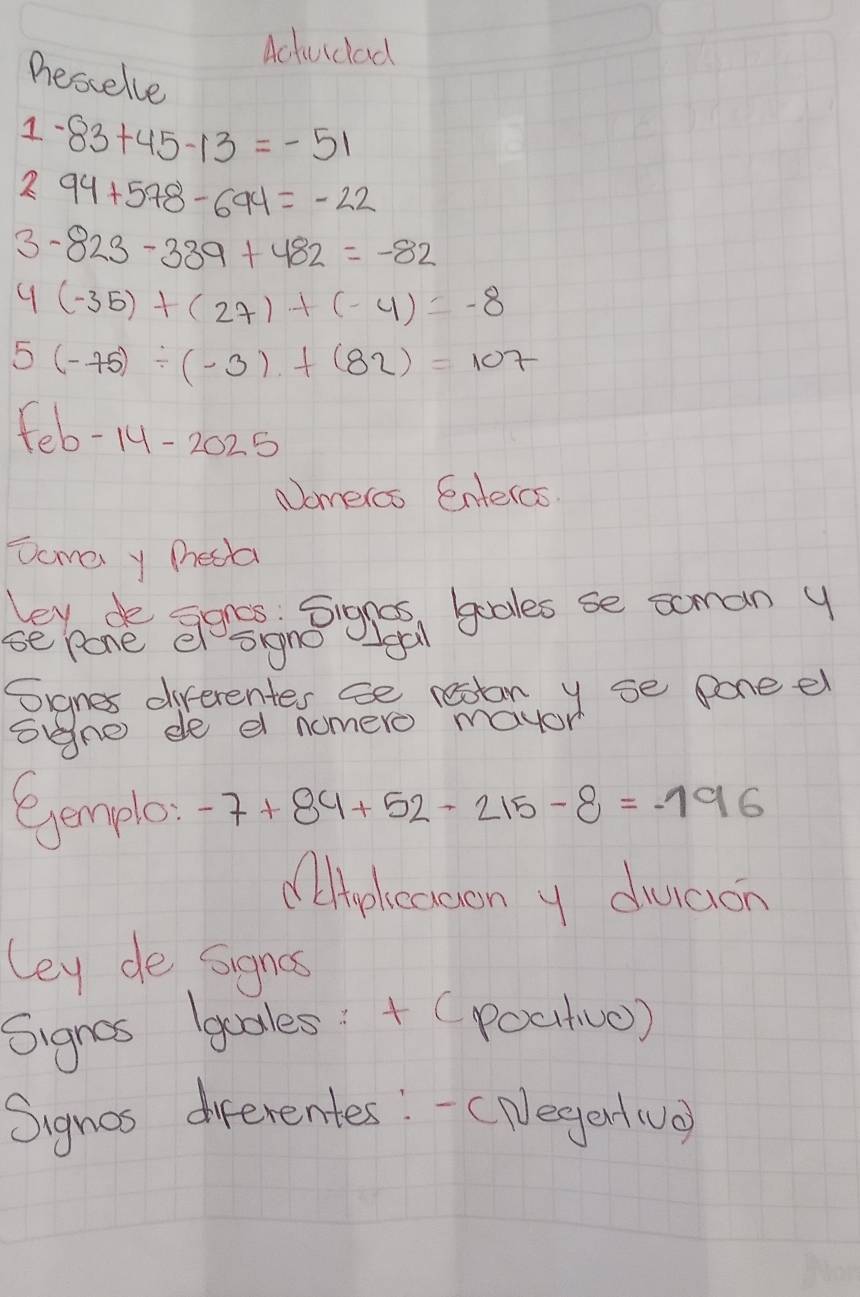 Actividad
Resuelve
1 -83+45-13 = -51
2 94+578-694= -22
3 -823-339+482 = -82
4 (-35) + (27) + (-4) = -8
5 (-75) ÷ (-3) + (82) = 107
Feb-14-2025
Nomeros Enteros.
Suma y Resta
Ley de signos: Signos Iguales se soman y
se pone el signo Igal
Signos diferentes se restan y se pone el
signo de el nomero mayor
Ejemplo: -7+84+52-215-8 = -196
Multiplicacion y divición
Ley de Signos
Signos Iguales: + (pocitivo)
Signos diferentes: - (Negativo)